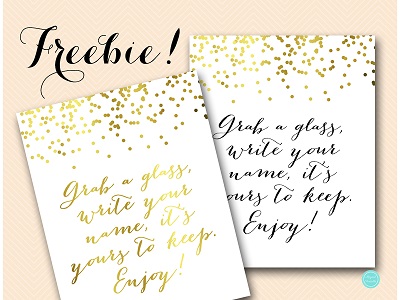 Freebie!
Grab a glass,
write your
name, it's
yours to keep.
Enjoy!
Grab a glass,
write your
name, it's
yours to keep.
Enjoy!